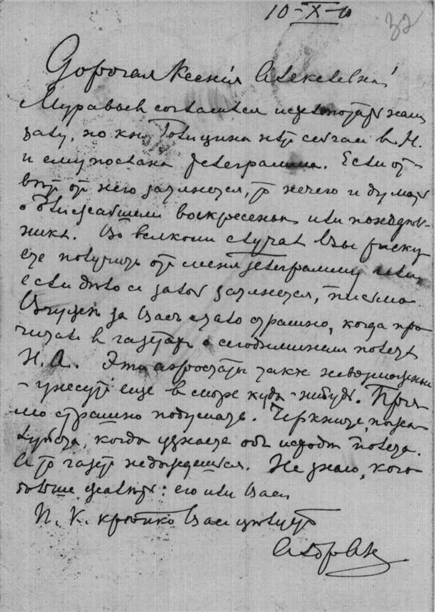 10-X-10
32
Дорогая Ксенія Алексеевна!
Муравьев согласился
залу, но кн. Голицина нѣт сейчас в Н.
и ему послана телеграмма. Если от
него затянется, то нечего и думать
о ближайшем воскресеньи или понедѣль-
нике. Во всяком случаѣ Вы риску-
ете получить от меня телеграмму или
если дѣло с залой затянется, письмо
за Вас стало страшно, когда про-
читали в газетах о сегодняшнем полетѣ
Н. А. Эти аэростаты такие невозможные
- унесут еще в море куда-нибудь. Пря-
мо страшно подумать. Черкните пожа-
луйста, когда узнаете об исходѣ полета.
А то газет не дождешься. Не знаю, кого
больше жалѣть: его или Вас.
П. К. крѣпко Вас цѣлует